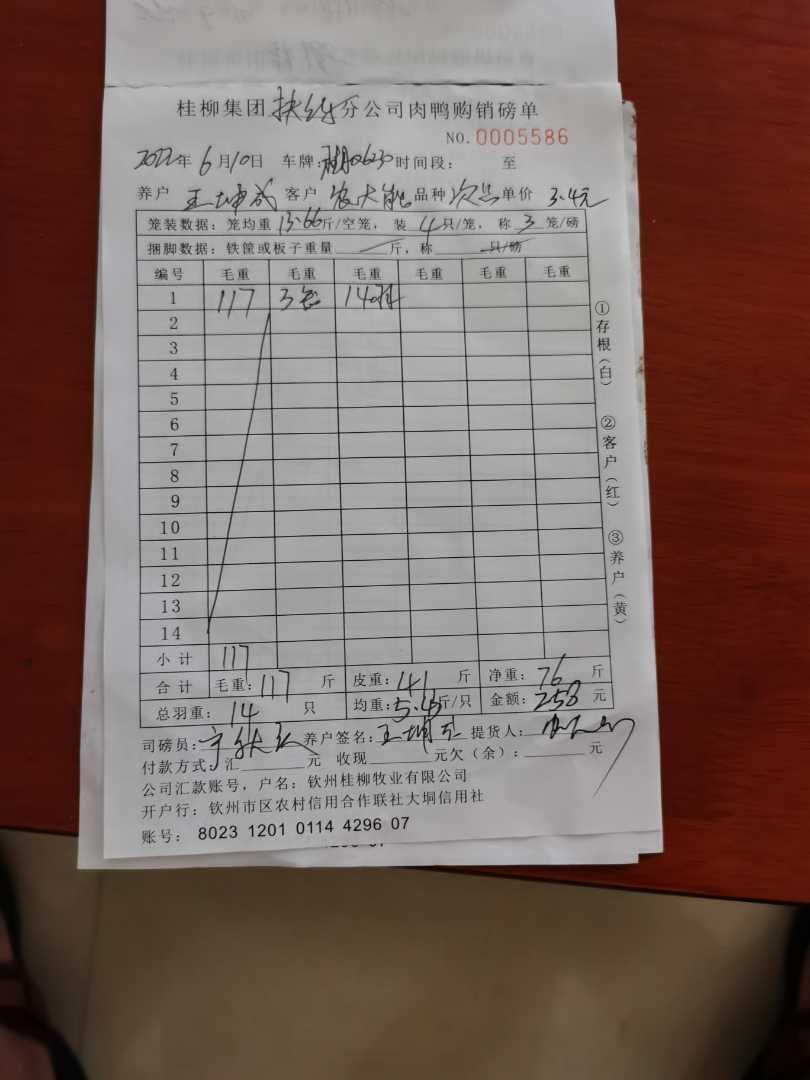 桂柳集团扶绥分公司肉鸭购销磅单
NO.0005586
2022年6月10日 车牌: 时间段: 至
养户 王坤成 客户 农大能 品种 次品 单价 3.4元
笼装数据: 笼均重 13.66斤/空笼, 装 4只/笼, 称 3 笼/磅
捆脚数据: 铁筐或板子重量 斤, 称 只/磅
编号 毛重 毛重 毛重 毛重 毛重 毛重
1 117 3笼 14羽
2
3
4
5
6
7
8
9
10
11
12
13
14
小计 117
合计 毛重: 117 斤 皮重: 41 斤 净重: 76 斤
总羽重: 14 只 均重: 5.43斤/只 金额: 258 元
①存根(白)
②客户(红)
③养户(黄)
司磅员: 养户签名: 王坤成 提货人:
付款方式: 汇 元 收现 元欠(余): 元
公司汇款账号, 户名: 钦州桂柳牧业有限公司
开户行: 钦州市区农村信用合作联社大垌信用社
账号: 8023 1201 0114 4296 07